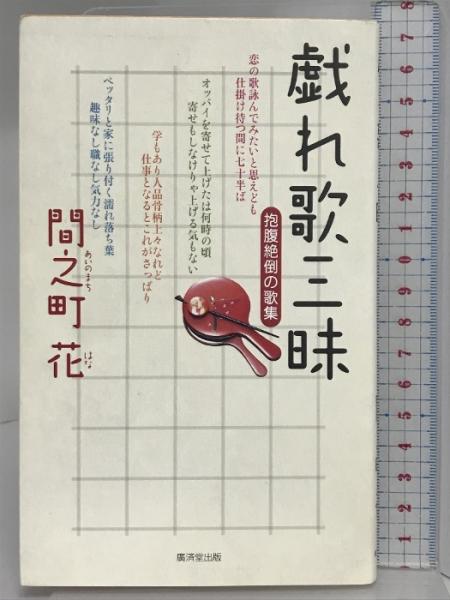 戯れ歌三昧
抱腹絶倒の歌集
恋の歌詠んでみたいと思えども
仕掛け待つ間に七十半ば
オッパイを寄せて上げたは何時の頃
寄せもしなけりゃ上げる気もない
学もあり人品骨柄上々なれど
仕事となるとこれがさっぱり
ベッタリと家に張り付く濡れ落ち葉
趣味なし職なし気力なし
間之町 花
あいのまち はな
廣済堂出版
8 7 6 5 4 3 2 1 0 9 8 7 6 5 4 3 2 1